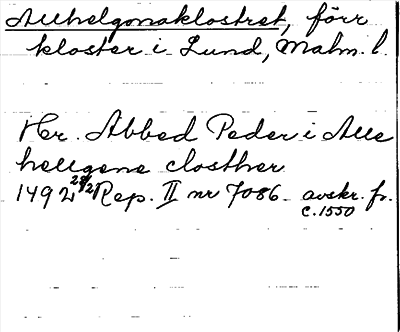 Allhelgonaklostret, förr
kloster i Lund, Malm. l.
Her. Abbed Peder i Alle
helgene closther
1492 28/2 Rep. II nr 7086 avskr. fr.
c. 1550